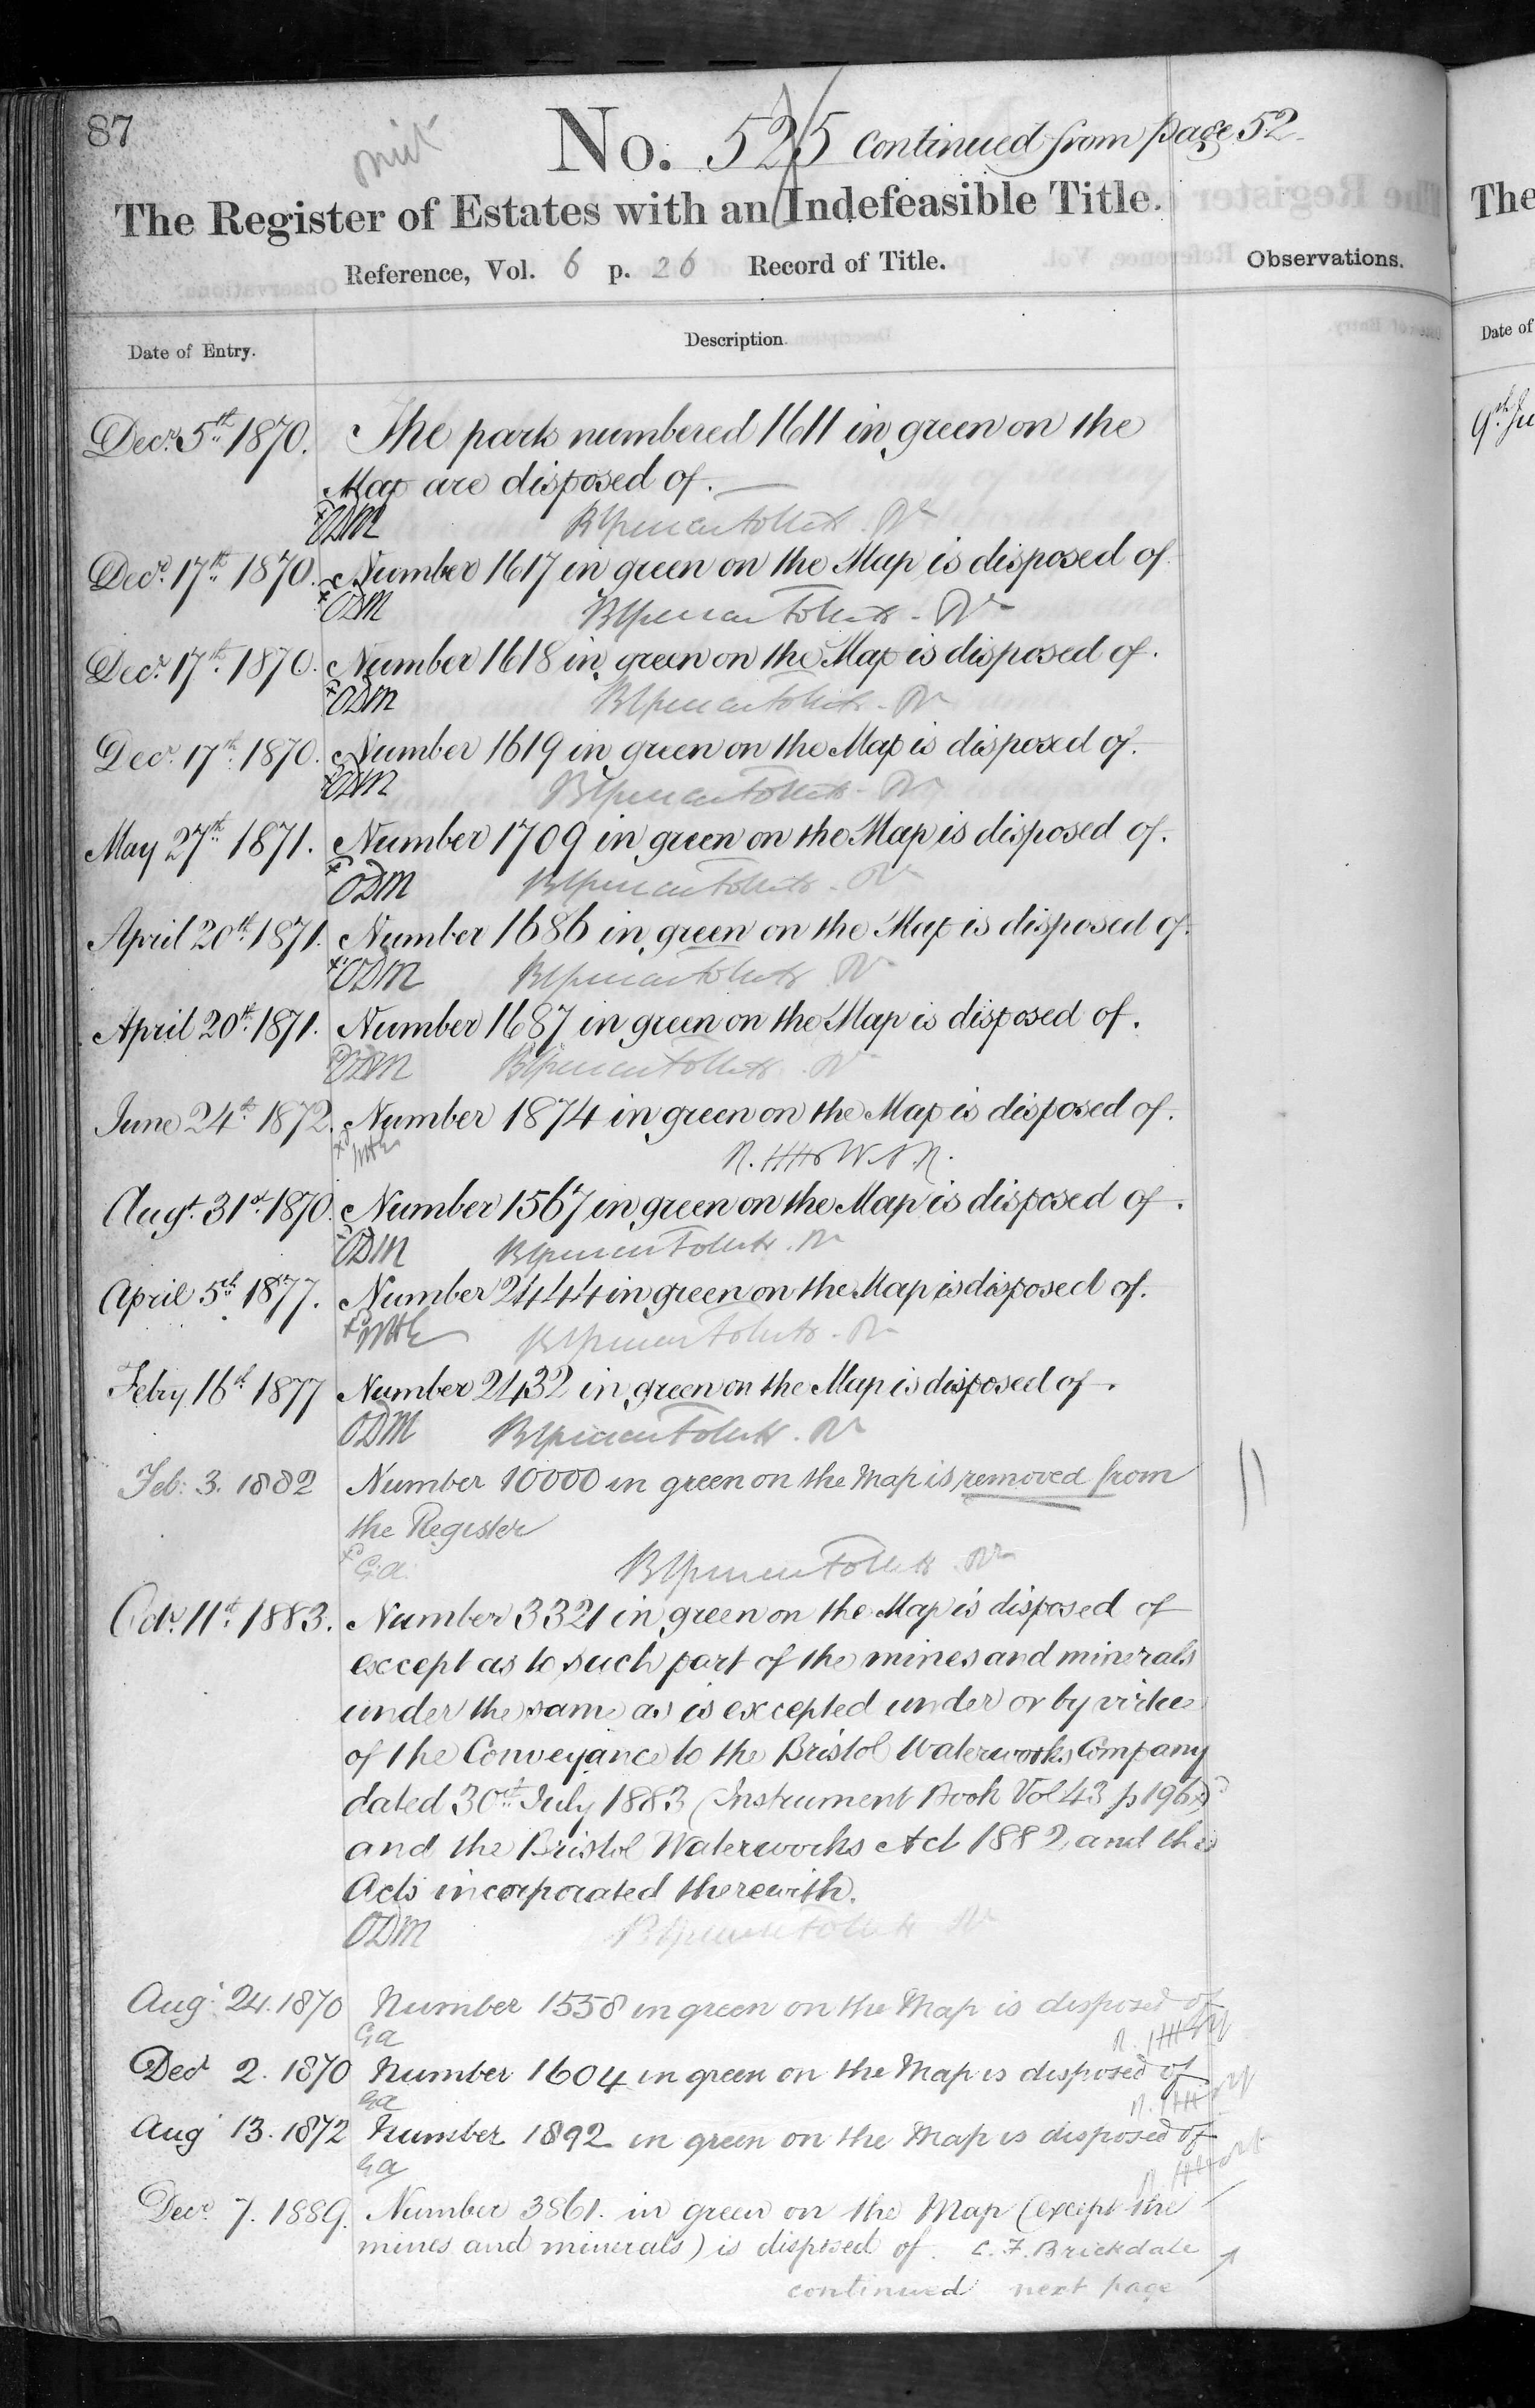 87
omit
No. 525 continued from page 52
The Register of Estates with an Indefeasible Title.
Reference, Vol. 6 p. 26 Record of Title.
Observations.
Date of Entry.
Description.
Decr. 5th 1870. The parts numbered 1611 in green on the
Map are disposed of.
ODM
Decr. 17th 1870. Number 1617 in green on the Map is disposed of
ODM
Decr. 17th 1870. Number 1618 in green on the Map is disposed of.
ODM
Decr. 17th 1870. Number 1619 in green on the Map is disposed of.
ODM
May 27th 1871. Number 1709 in green on the Map is disposed of.
ODM
April 20th 1871. Number 1686 in green on the Map is disposed of.
ODM
April 20th 1871. Number 1687 in green on the Map is disposed of.
ODM
June 24th 1872. Number 1874 in green on the Map is disposed of.
Augt. 31st 1870. Number 1567 in green on the Map is disposed of.
ODM
April 5th 1877. Number 2444 in green on the Map is disposed of.
Febry 16th 1877 Number 2432 in green on the Map is disposed of.
ODM
Feb: 3. 1882 Number 10000 in green on the Map is removed from
the Register
G.a.
Octr. 11th 1883. Number 3321 in green on the Map is disposed of
except as to such part of the mines and minerals
under the same as is excepted under or by virtue
of the Conveyance to the Bristol Waterworks Company
dated 30th July 1883 (Instrument Book Vol 43 p 196)
and the Bristol Waterworks Act 1882 and the
Acts incorporated therewith.
ODM
Aug. 24. 1870 Number 1558 in green on the Map is disposed of
Ga
Decr 2. 1870 Number 1604 in green on the Map is disposed of
Ga
Aug 13. 1872 Number 1892 in green on the Map is disposed of
Ga
Decr. 7. 1889. Number 3861. in green on the Map (except the
mines and minerals) is disposed of. C. F. Brickdale
continued next page
The
Date of
9th Ju